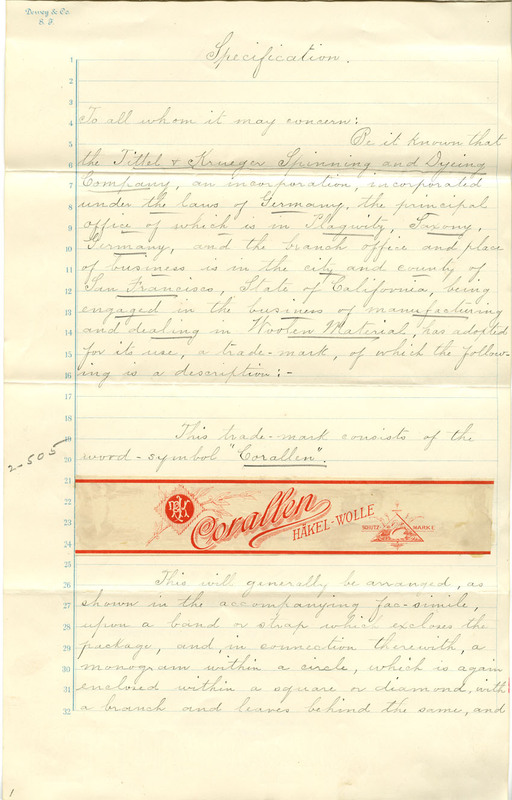 Dewey & Co.
S. F.
1
Specification.
2
3
4
To all whom it may concern:
5
Be it known that
6
the Tittel & Krueger Spinning and Dyeing
7
Company, an incorporation, incorporated
8
under the laws of Germany, the principal
9
office of which is in Plagwitz, Saxony,
10
Germany, and the branch office and place
11
of business is in the city and county of
12
San Francisco, State of California, being
13
engaged in the business of manufacturing
14
and dealing in Woolen Material, has adopted
15
for its use, a trade-mark, of which the follow-
16
ing is a description:-
17
18
19
This trade-mark consists of the
20
word-symbol "Corallen".
2-505
21
22
23
24
Corallen
HÄKEL-WOLLE
SCHUTZ MARKE
25
26
This will generally be arranged, as
27
shown in the accompanying fac-simile,
28
upon a band or strap which encloses the
29
package, and, in connection therewith, a
30
monogram within a circle, which is again
31
enclosed within a square or diamond, with
32
a branch and leaves behind the same, and
1